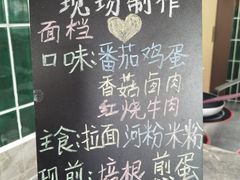 现场制作
面档
口味:番茄鸡蛋
香菇卤肉
红烧牛肉
主食:拉面河粉米粉
现煎:培根煎蛋